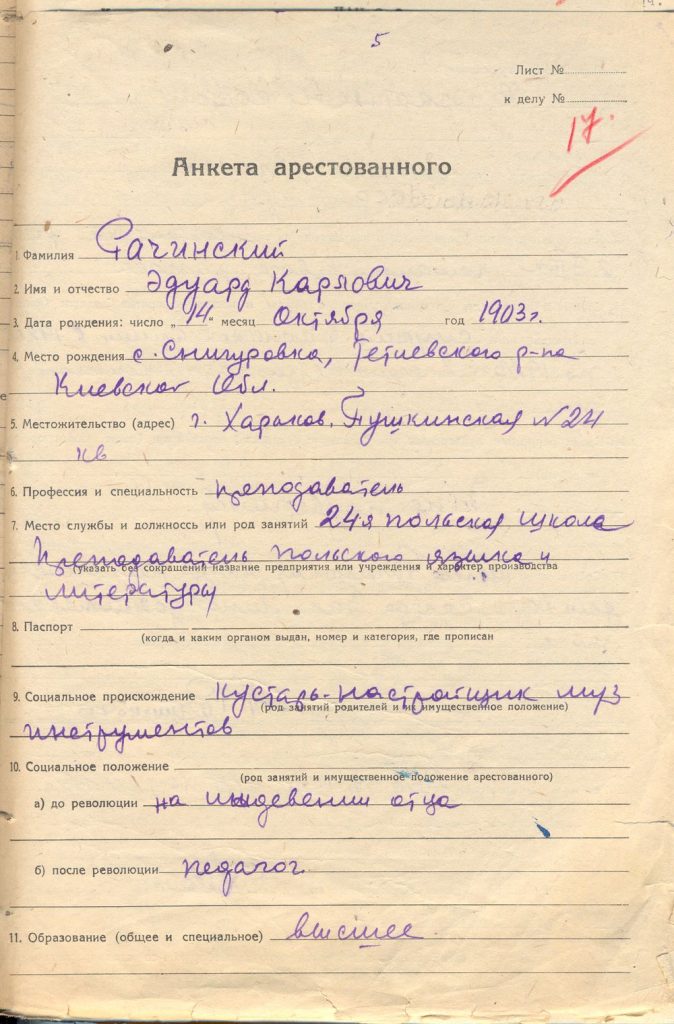 5
Лист №
к делу №
17.
Анкета арестованного
1. Фамилия Рачинский
2. Имя и отчество Эдуард Карлович
3. Дата рождения: число „14" месяц Октября год 1903 г.
4. Место рождения с. Снигуровка, Тетиевского р-на
Киевской Обл.
5. Местожительство (адрес) г. Харьков. Пушкинская № 24
кв
6. Профессия и специальность преподаватель
7. Место службы и должноссь или род занятий 24я польская школа
Преподаватель польского языка и
(указать без сокращений название предприятия или учреждения и характер производства
литературы
8. Паспорт
(когда и каким органом выдан, номер и категория, где прописан
9. Социальное происхождение кустарь-настройщик муз
(род занятий родителей и их имущественное положение)
инструментов
10. Социальное положение
(род занятий и имущественное положение арестованного)
а) до революции на иждевении отца
б) после революции педагог.
11. Образование (общее и специальное) высшее.